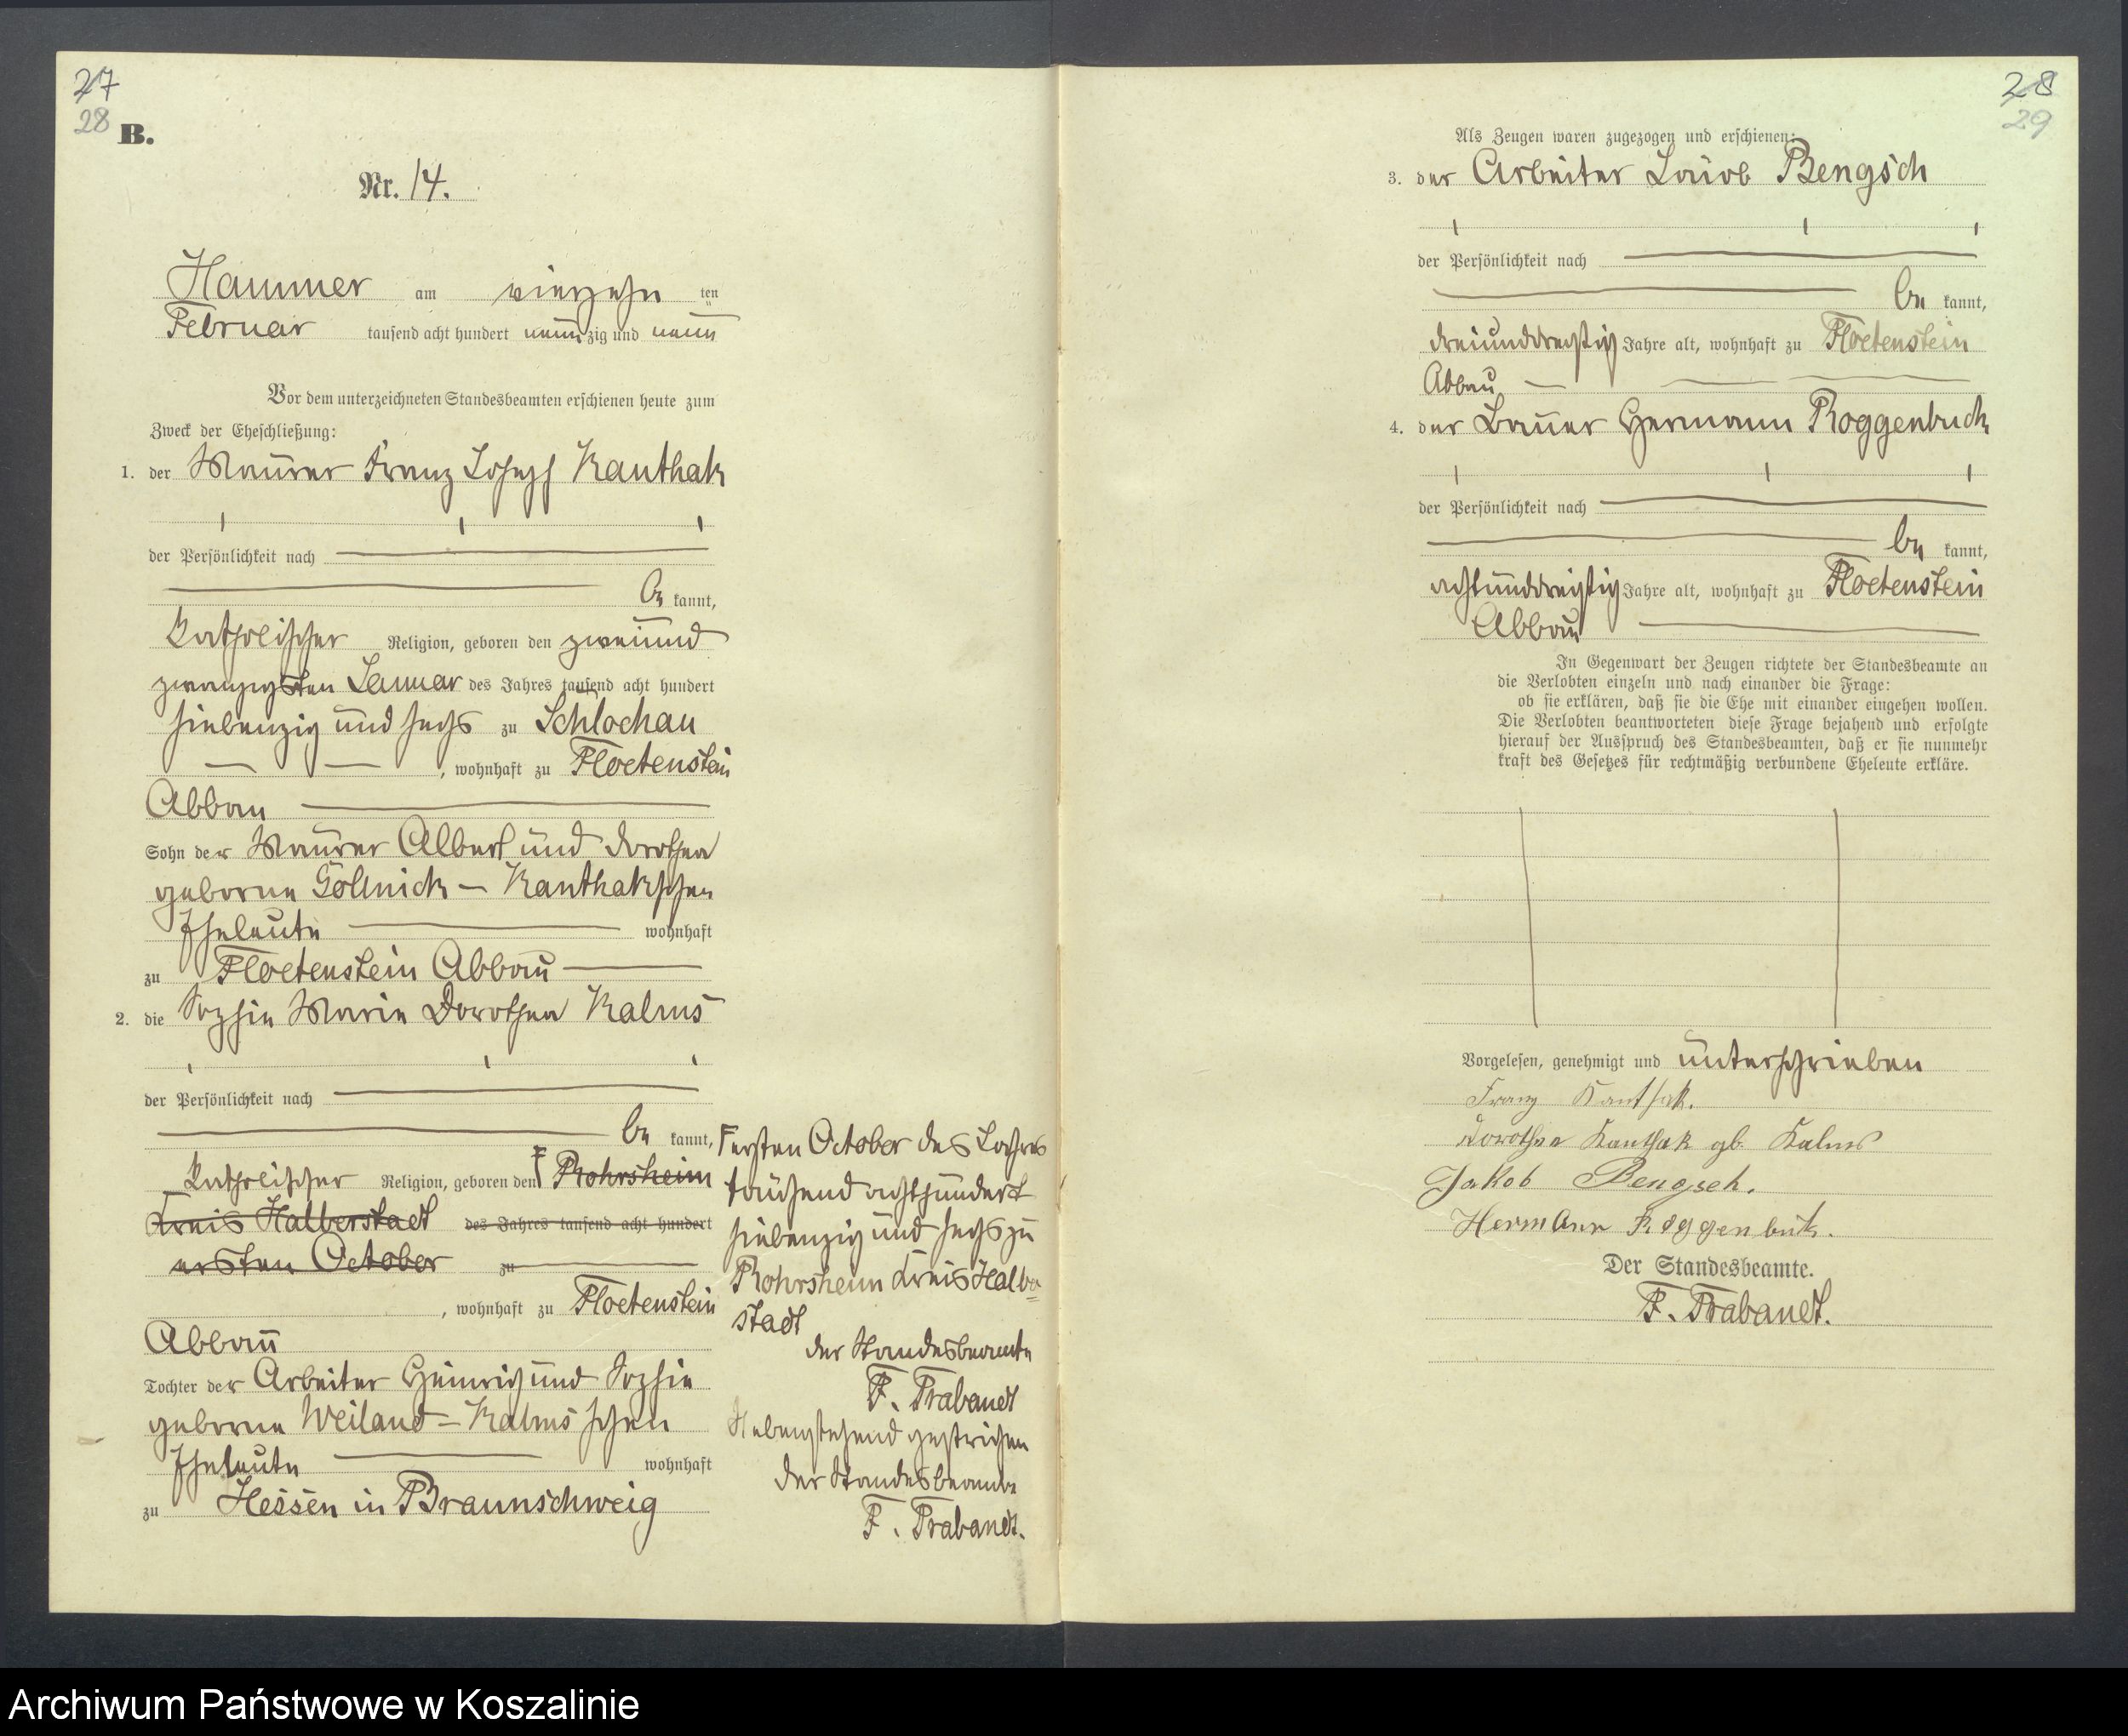 27
28
B.
Nr. 14.
Hammer am vierzehn ten
Februar tausend acht hundert neunzig und neun
Vor dem unterzeichneten Standesbeamten erschienen heute zum
Zweck der Eheschließung:
1. der Maurer Franz Joseph Kanthak
der Persönlichkeit nach
be kannt,
katholischer Religion, geboren den zweiund
zwanzigsten Januar des Jahres tausend acht hundert
siebenzig und sechs zu Schlochau
, wohnhaft zu Floetenstein
Abbau
Sohn der Maurer Albert und Dorothea
geborne Göllnick - Kanthakschen
Eheleute wohnhaft
zu Floetenstein Abbau
2. die Sophie Marie Dorothea Kalms
der Persönlichkeit nach
be kannt,
katholischer Religion, geboren den Rohrsheim
Kreis Halberstadt des Jahres tausend acht hundert
ersten October zu
, wohnhaft zu Floetenstein
Abbau
Tochter der Arbeiter Heinrich und Sophie
geborne Weiland - Kalms schen
Eheleute wohnhaft
zu Hessen in Braunschweig
ersten October des Jahres
tausend achthundert
siebenzig und sechs zu
Rohrsheim Kreis Halber=
stadt
der Standesbeamte
F. Trabandt
Nebenstehend gestrichen
Der Standesbeamte
F. Trabandt.
28
29
Als Zeugen waren zugezogen und erschienen:
3. der Arbeiter Jacob Bengsch
der Persönlichkeit nach
be kannt,
dreiunddreißig Jahre alt, wohnhaft zu Floetenstein
Abbau
4. der Bauer Hermann Roggenbuck
der Persönlichkeit nach
be kannt,
achtunddreißig Jahre alt, wohnhaft zu Floetenstein
Abbau
In Gegenwart der Zeugen richtete der Standesbeamte an
die Verlobten einzeln und nach einander die Frage:
ob sie erklären, daß sie die Ehe mit einander eingehen wollen.
Die Verlobten beantworteten diese Frage bejahend und erfolgte
hierauf der Ausspruch des Standesbeamten, daß er sie nunmehr
kraft des Gesetzes für rechtmäßig verbundene Eheleute erkläre.
Vorgelesen, genehmigt und unterschrieben
Franz Kanthak.
Dorothea Kanthak gb Kalms
Jakob Bengsch.
Hermann Roggenbuk.
Der Standesbeamte.
F. Trabandt.
Archiwum Państwowe w Koszalinie